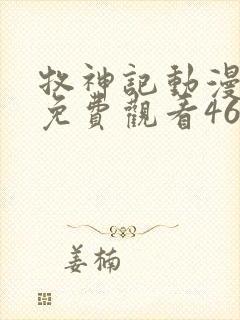 牧神記動漫
免費觀看46
姜楠